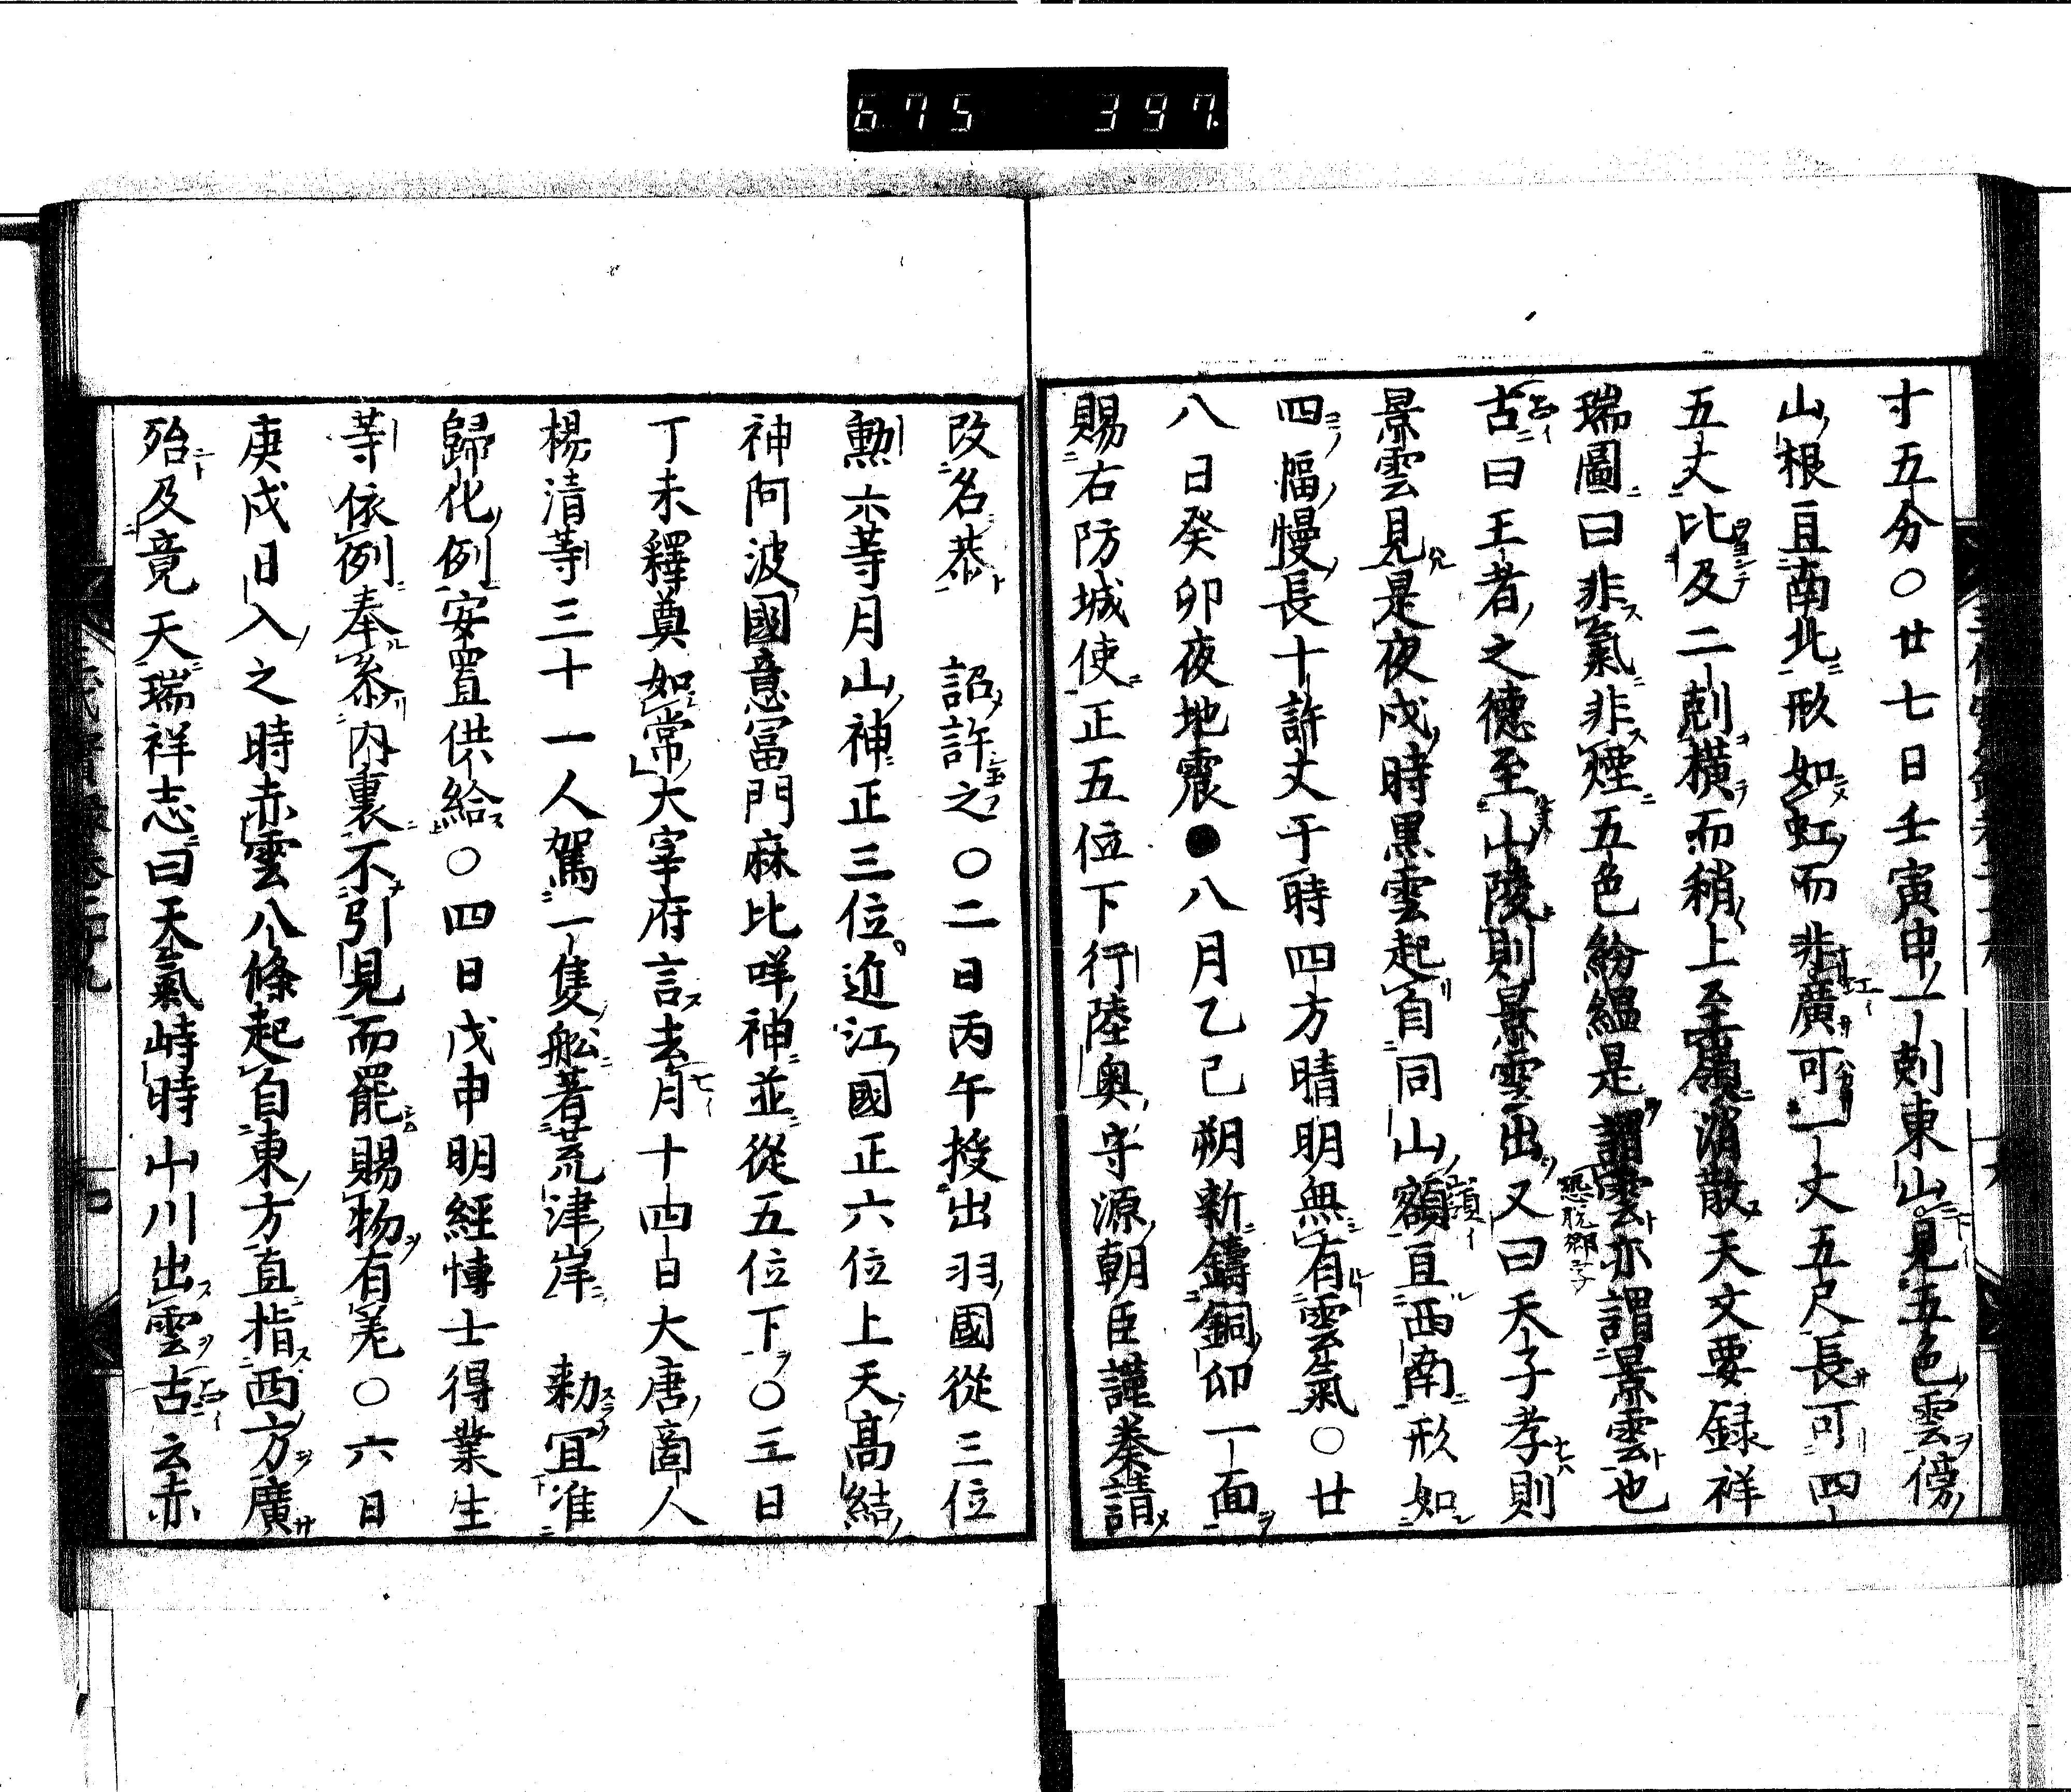 675 397
寸五分○廿七日壬寅申一剋東山見五色雲傍
山根亘南北形如虹而非廣可一丈五尺長可四
五丈比及二剋横而稍上至属消散天文要録祥
瑞圖曰非氣非煙五色紛縕是謂雲亦謂景雲也
古曰王者之德至山陵則景雲出又曰天子孝則
景雲見是夜戌時黒雲起自同山額亘西南形如
四幅幔長十許丈于時四方晴明無有雲氣○廿
八日癸卯夜地震●八月乙巳朔新鑄銅印一面
賜右防城使正五位下行陸奥守源朝臣謹奏請
改名恭 詔許之○二日丙午授出羽國從三位
勳六等月山神正三位近江國正六位上天髙結
神阿波國意冨門麻比咩神並從五位下○三日
丁未釋奠如常大宰府言去月十四日大唐啇人
楊清等三十一人駕一隻舩著荒津岸 勅冝准
歸化例安置供給○四日戊申明經博士得業生
等依例奉參内裏不引見而罷賜物有差○六日
庚戌日入之時赤雲八條起自東方直指西方廣
殆及竟天瑞祥志曰天氣峙時山川出雲古云赤